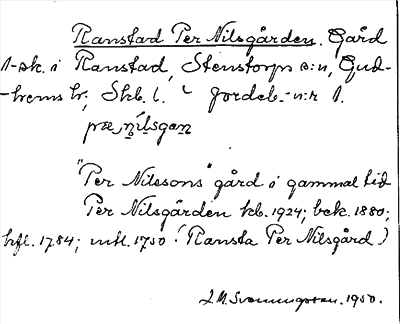 Ranstad Per Nilsgården. Gård
1-sk. i Ranstad, Stenstorps s:n, Gud-
-hems hr, Skb. l. Jordeb.-n:r 1.
pæ nilsgan
"Per Nilssons" gård i gammal tid
Per Nilsgården kb. 1924; bek. 1880;
hfl. 1784; mtl. 1750 (Ransta Per Nilsgård)
J.M. Svenningsson. 1950.